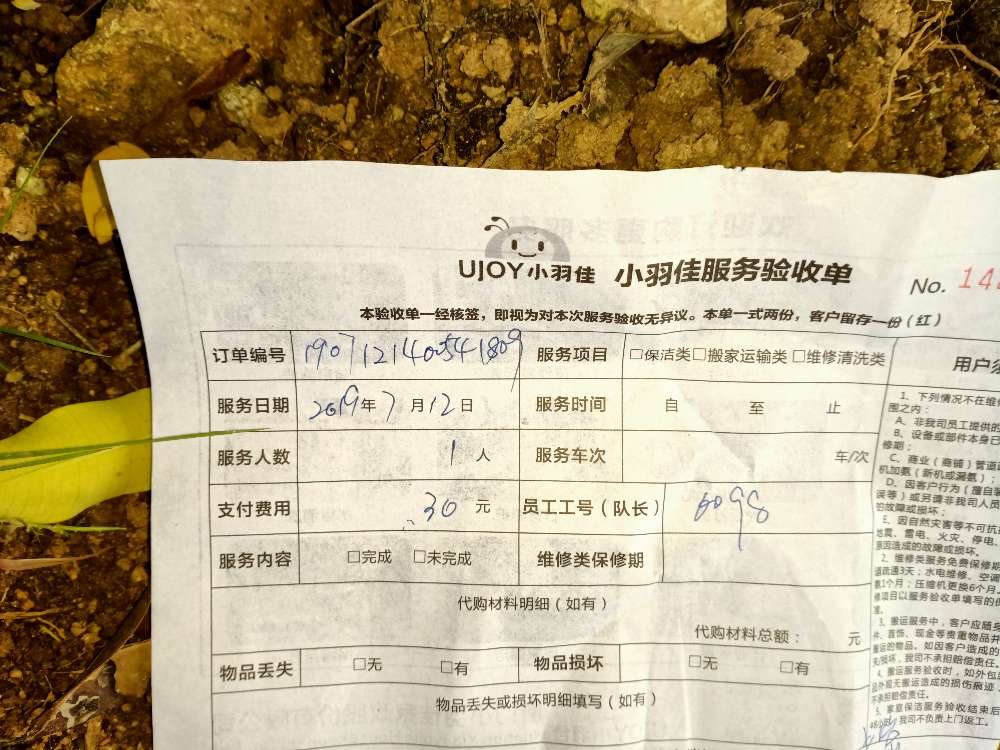 UJOY小羽佳 小羽佳服务验收单
No. 14
本验收单一经核签，即视为对本次服务验收无异议。本单一式两份，客户留存一份（红）
订单编号 190712140541809 服务项目 □保洁类□搬家运输类□维修清洗类
服务日期 2019年7月12日 服务时间 自 至 止
服务人数 1人 服务车次 车/次
支付费用 30元 员工工号（队长） 6098
服务内容 □完成 □未完成 维修类保修期
代购材料明细（如有）
代购材料总额： 元
物品丢失 □无 □有 物品损坏 □无 □有
物品丢失或损坏明细填写（如有）
用户须
1、下列情况不在维修
围之内：
A、非我司员工提供的
B、设备或部件本身已
修期；
C、商业（商铺）管道
机加氨（新机或漏氨）；
D、因客户行为（擅自
误等）或另请非我司人员
的故障或损坏；
E、因自然灾害等不可抗
地震、雷电、火灾、停电、
原因造成的故障或损坏。
2、维修类服务免费保修期
道疏通3天；水电维修、空调
1个月；压缩机更换6个月。
修项目以服务验收单填写的保
3、搬运服务中，客户应随身
件、首饰、现金等贵重物品并
搬运的物品。如因客户造成的
失/损坏，我司不承担赔偿责任。
4、搬运服务验收时，如外包
品外观无搬运造成的损伤痕迹，
不承担赔偿责任。
5、家庭保洁服务验收结束后
48 我司不负责上门返工。